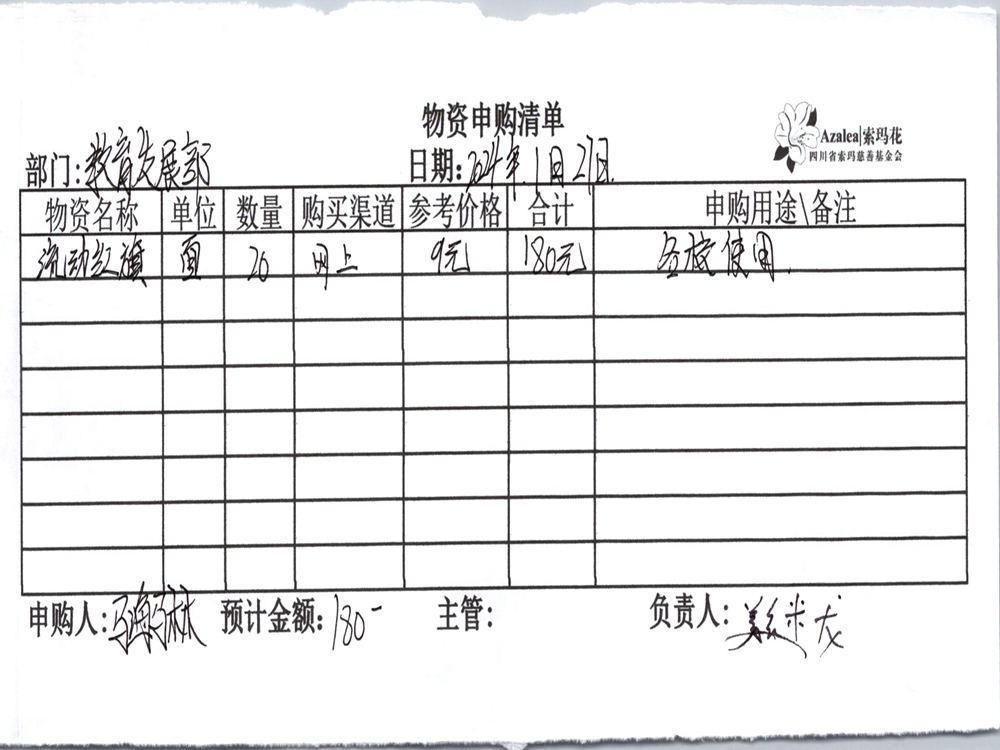 物资申购清单
Azalea|索玛花
四川省索玛慈善基金会
部门:教育发展部 日期:2024年.1月21日.
物资名称 单位 数量 购买渠道 参考价格 合计 申购用途\备注
流动红旗 面 20 网上 9元 180元 各校使用.
申购人: 预计金额:180- 主管: 负责人: